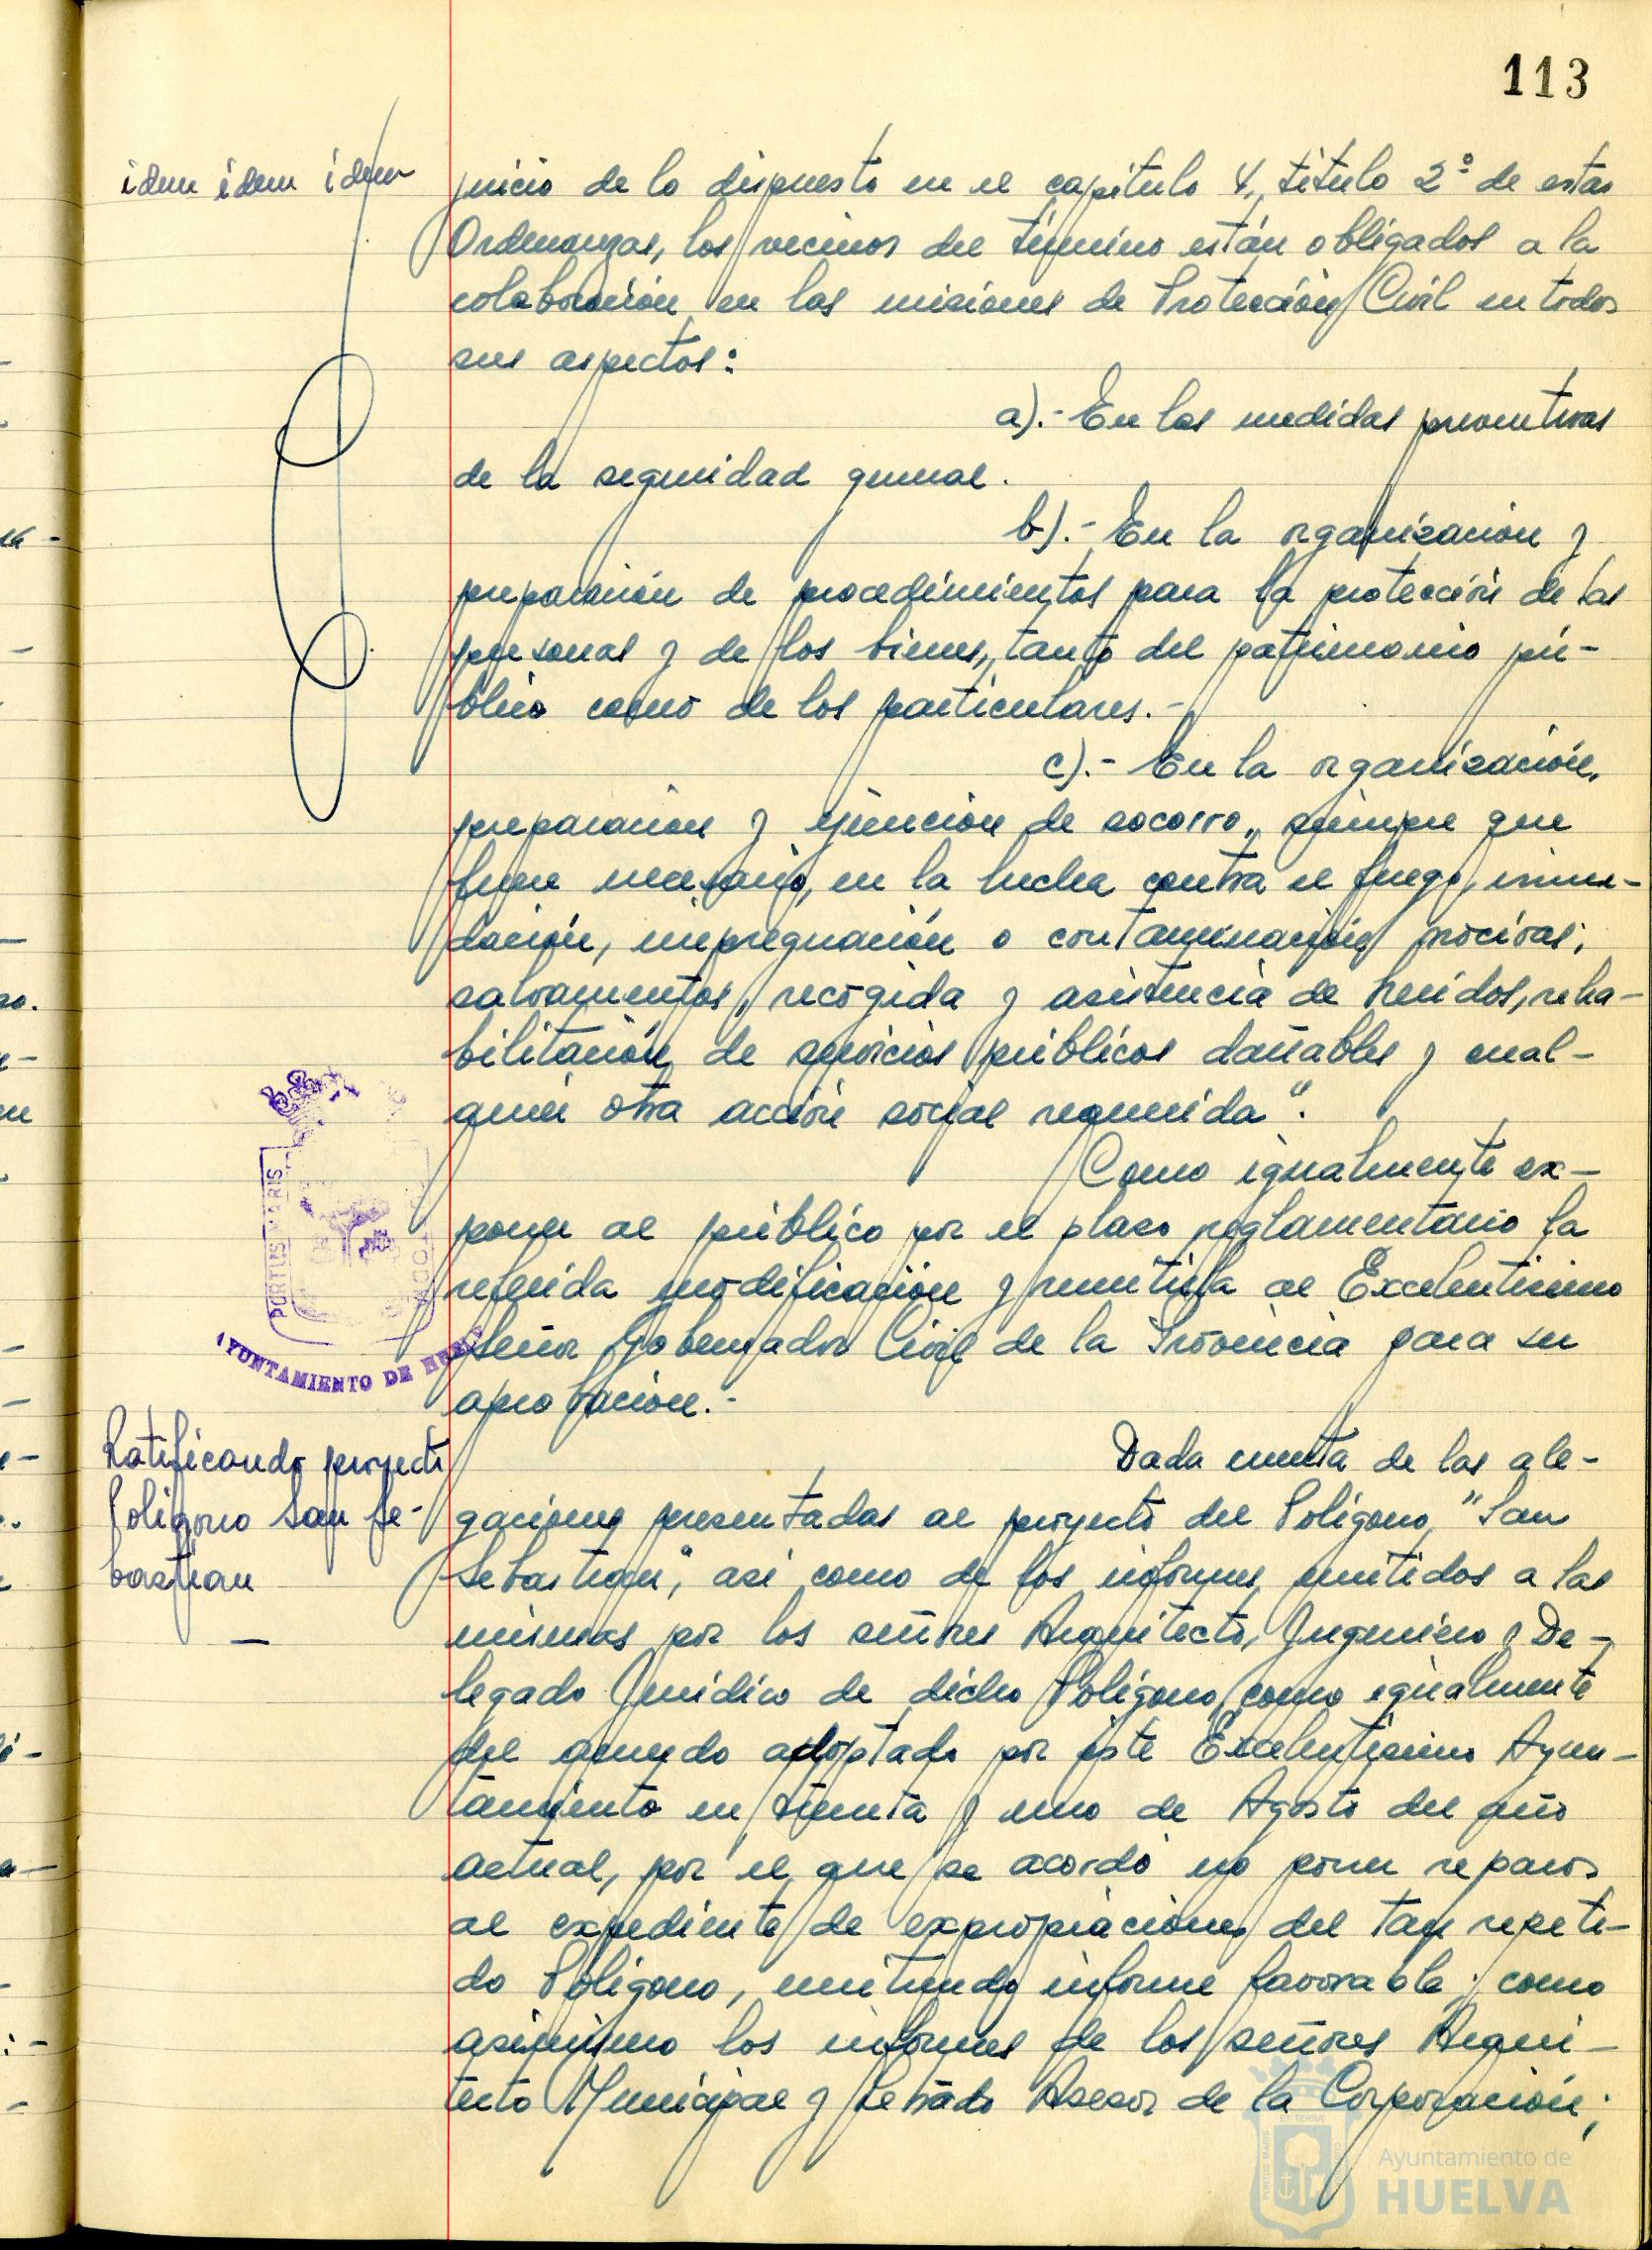 113
idem idem idem
juicio de lo dispuesto en el capítulo 4, título 2º de estas
Ordenanzas, los vecinos del término están obligados a la
colaboración en las misiones de Protección Civil en todos
sus aspectos:
a).- En las medidas preventivas
de la seguridad general.
b).- En la organización y
preparación de procedimientos para la protección de las
personas y de los bienes, tanto del patrimonio pú-
blico como de los particulares.-
c).- En la organización,
preparación y ejecución de socorro, siempre que
fuere necesario, en la lucha contra el fuego, inun-
dación, impregnación o contaminación nocivas;
salvamentos, recogida y asistencia de heridos, reha-
bilitación de servicios públicos dañables y cual-
quier otra acción social requerida".
Como igualmente ex-
poner al público por el plazo reglamentario la
referida modificación y remitirla al Excelentísimo
Señor Gobernador Civil de la Provincia para su
aprobación.-
PORTUS MARIS
AYUNTAMIENTO DE HUELVA
Ratificando proyecto
Polígono San Se-
bastian
Dada cuenta de las ale-
gaciones presentadas al proyecto del Polígono "San
Sebastian", asi como de los informes emitidos a las
mismas por los señores Arquitecto, Ingeniero y De-
legado Jurídico de dicho Polígono, como igualmente
del acuerdo adoptado por este Excelentísimo Ayun-
tamiento en treinta y uno de Agosto del año
actual, por el que se acordó no poner reparos
al expediente de expropiaciones del tan repeti-
do Polígono, emitiendo informe favorable; como
asimismo los informes de los señores Arqui-
tecto Municipal y Letrado Asesor de la Corporación;
Ayuntamiento de
HUELVA